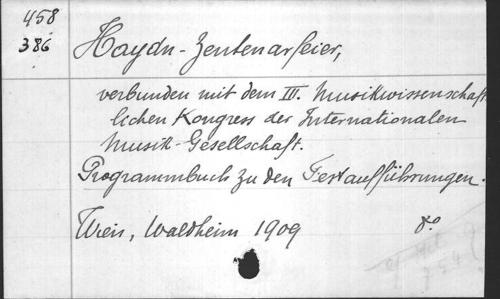 458
386
Haydn-Zentenarfeier,
verbunden mit dem III. Musikwissenschaft
lichen Kongress der Internationalen
Musik-Gesellschaft.
Programmbuch zu den Festaufführungen.
Wien, Waldheim 1909 8°